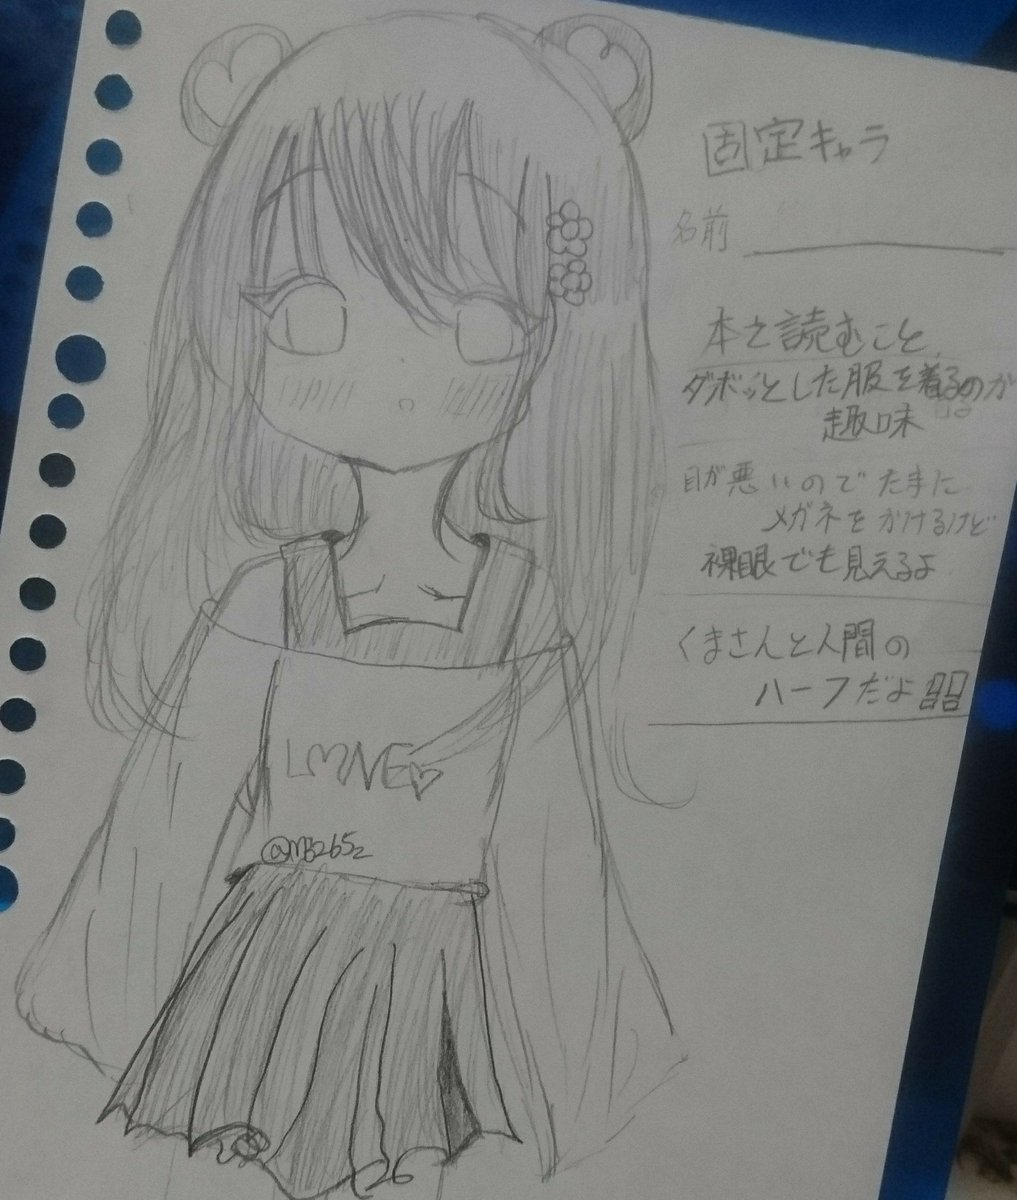 固定キャラ
名前
本を読むこと、
ダボッとした服を着るのが
趣味
目が悪いのでたまに
メガネをかけるけど
裸眼でも見えるよ
くまさんと人間の
ハーフだよ
LOVE♡
@MB2652